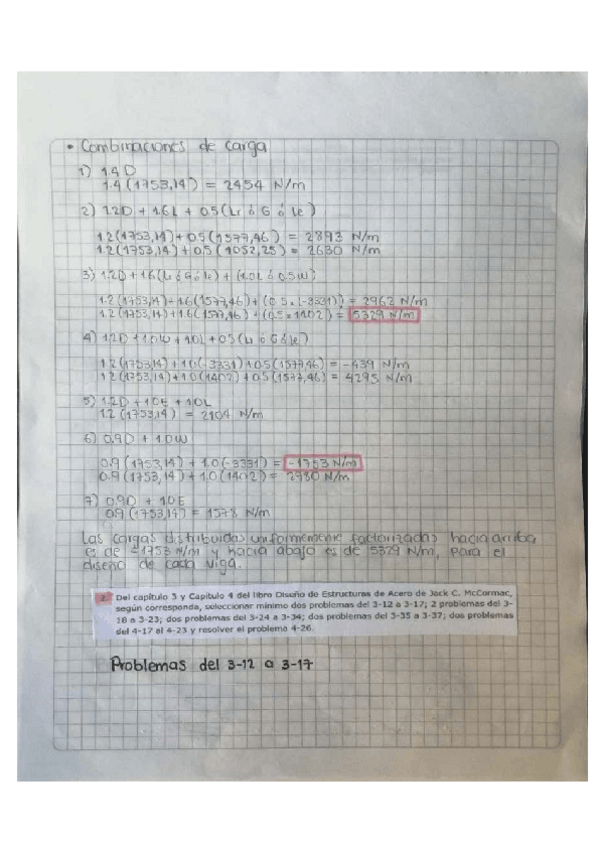 • Combinaciones de carga
1) 1.4 D
1.4 (1753,14) = 2454 N/m
2) 1.2D + 1.6L + 0.5 (Lr ó G ó Le)
1.2 (1753,14) + 0.5 (1577,46) = 2893 N/m
1.2 (1753,14) + 0.5 (1052,25) = 2630 N/m
3) 1.2D + 1.6 (Lr ó G ó Le) + (1.0L ó 0.5W)
1.2 (1753,14) + 1.6 (1577,46) + (0.5 x (-3331)) = 2962 N/m
1.2 (1753,14) + 1.6 (1577,46) + (0.5 x 1402) = 5329 N/m
4) 1.2D + 1.0W + 1.0L + 0.5 (Lr ó G ó Le)
1.2 (1753,14) + 1.0 (-3331) + 0.5 (1577,46) = -439 N/m
1.2 (1753,14) + 1.0 (1402) + 0.5 (1577,46) = 4295 N/m
5) 1.2D + 1.0E + 1.0L
1.2 (1753,14) = 2104 N/m
6) 0.9D + 1.0W
0.9 (1753,14) + 1.0 (-3331) = -1753 N/m
0.9 (1753,14) + 1.0 (1402) = 2980 N/m
7) 0.9D + 1.0E
0.9 (1753,14) = 1578 N/m
Las cargas distribuidas uniformemente factorizadas hacia arriba
es de -1753 N/m y hacia abajo es de 5329 N/m, para el
diseño de cada viga.
2. Del capítulo 3 y Capítulo 4 del libro Diseño de Estructuras de Acero de Jack C. McCormac,
según corresponda, seleccionar mínimo dos problemas del 3-12 a 3-17; 2 problemas del 3-
18 a 3-23; dos problemas del 3-24 a 3-34; dos problemas del 3-35 a 3-37; dos problemas
del 4-17 al 4-23 y resolver el problema 4-26.
Problemas del 3-12 a 3-17